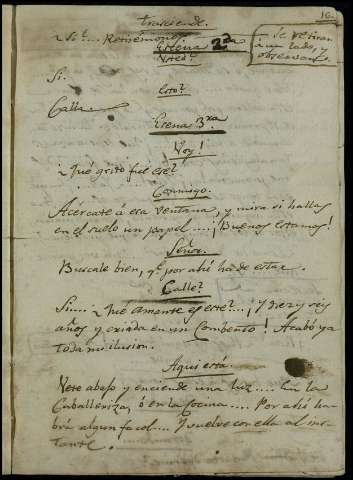 16.
trasciende.
¿Si?.... Retirémonos
Se retiran
á un lado, y
observan.
Escena 2da
Usted?
Si.
Esto?
Calla.
Escena 3.ra
Voy!
¿Qué grito fué ese?
Conmigo.
Acércate á esa ventana, y mira si hallas
en el suelo un papel.... ¡Buenos estamos!
Señor.
Buscale bien, q.e por ahi ha de estar.
Calle?
Si.... ¿Qué amante es este?.... ¡Y diez y seis
años y criada en un Combento! Acabó ya
toda mi ilusion.
Aqui está.
Vete abajo y enciende una luz.... En la
Caballeriza, ó en la Cocina.... Por ahi ha-
brá algun farol.... Y vuelve con ella al ins-
tante.